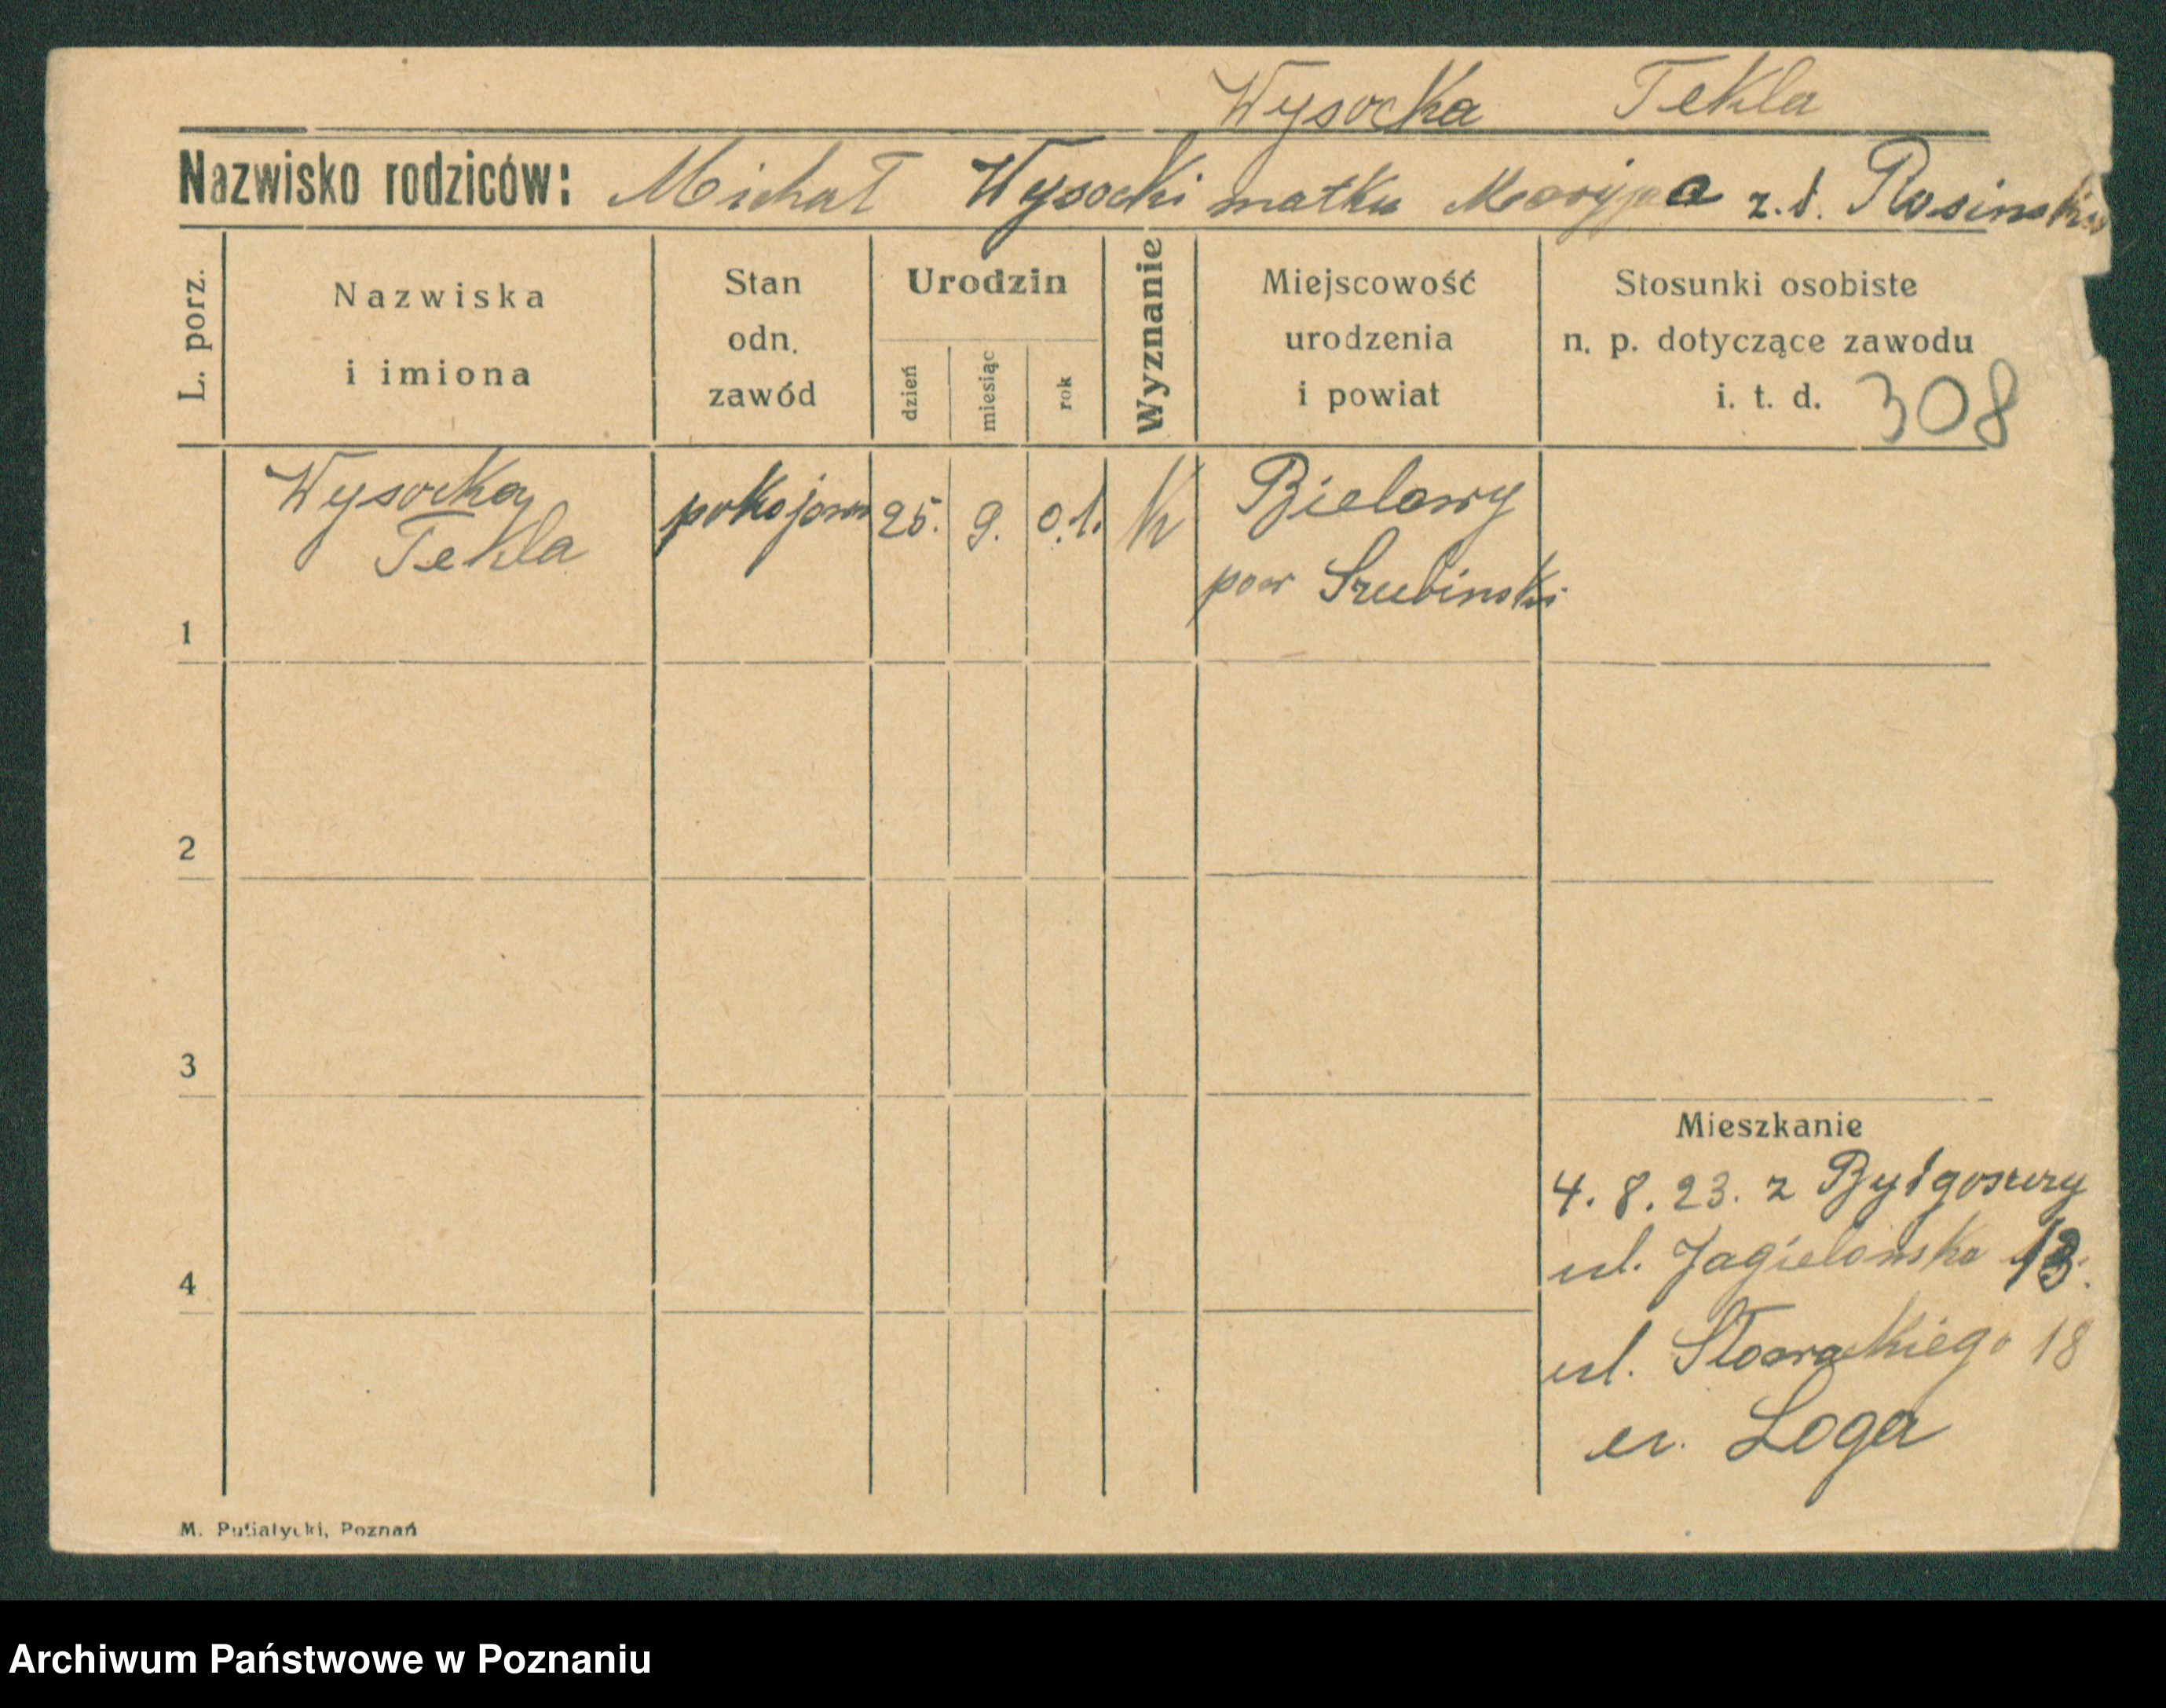 Wysocka Tekla
Nazwisko rodziców: Michał Wysocki matka Maryja z.d. Rosinska
L. porz.
Nazwiska
i imiona
Stan
odn.
zawód
Urodzin
dzień
miesiąc
rok
Wyznanie
Miejscowość
urodzenia
i powiat
Stosunki osobiste
n. p. dotyczące zawodu
i. t. d. 308
Wysocka
Tekla
pokojowa
25. 9. 01.
K
Bielawy
pow Szubinski
1
2
3
4
Mieszkanie
4. 8. 23. z Bydgoszczy
ul. Jagielonska 13.
ul. Słowackiego 18
Loga
M. Putiatycki, Poznań
Archiwum Państwowe w Poznaniu